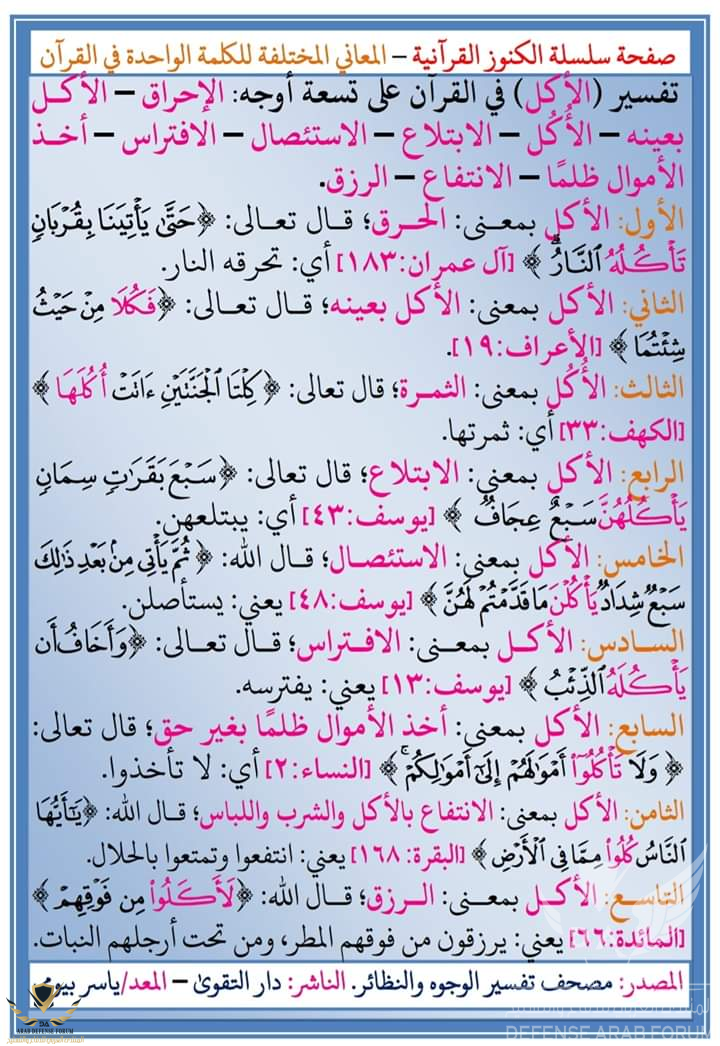 صفحة سلسلة الكنوز القرآنية – المعاني المختلفة للكلمة الواحدة في القرآن
تفسير (الأكل) في القرآن على تسعة أوجه: الإحراق – الأكل
بعينه – الأُكُل – الابتلاع – الاستئصال – الافتراس – أخذ
الأموال ظلمًا – الانتفاع – الرزق.
الأول: الأكل بمعنى: الحرق؛ قال تعالى: ﴿حَتَّىٰ يَأْتِيَنَا بِقُرْبَانٍ
تَأْكُلُهُ النَّارُ ۗ﴾ [آل عمران:١٨٣] أي: تحرقه النار.
الثاني: الأكل بمعنى: الأكل بعينه؛ قال تعالى: ﴿فَكُلَا مِنْ حَيْثُ
شِئْتُمَا﴾ [الأعراف:١٩].
الثالث: الأُكُل بمعنى: الثمرة؛ قال تعالى: ﴿كِلْتَا الْجَنَّتَيْنِ ءَاتَتْ أُكُلَهَا﴾
[الكهف:٣٣] أي: ثمرتها.
الرابع: الأكل بمعنى: الابتلاع؛ قال تعالى: ﴿سَبْعَ بَقَرَٰتٍ سِمَانٍ
يَأْكُلُهُنَّ سَبْعٌ عِجَافٌ﴾ [يوسف:٤٣] أي: يبتلعهن.
الخامس: الأكل بمعنى: الاستئصال؛ قال الله: ﴿ثُمَّ يَأْتِي مِنۢ بَعْدِ ذَٰلِكَ
سَبْعٌ شِدَادٌ يَأْكُلْنَ مَا قَدَّمْتُمْ لَهُنَّ﴾ [يوسف:٤٨] يعني: يستأصلن.
السادس: الأكل بمعنى: الافتراس؛ قال تعالى: ﴿وَأَخَافُ أَن
يَأْكُلَهُ الذِّئْبُ﴾ [يوسف:١٣] يعني: يفترسه.
السابع: الأكل بمعنى: أخذ الأموال ظلمًا بغير حق؛ قال تعالى:
﴿وَلَا تَأْكُلُوٓا۟ أَمْوَٰلَهُمْ إِلَىٰٓ أَمْوَٰلِكُمْ ۚ﴾ [النساء:٢] أي: لا تأخذوا.
الثامن: الأكل بمعنى: الانتفاع بالأكل والشرب واللباس؛ قال الله: ﴿يَٰٓأَيُّهَا
النَّاسُ كُلُوا۟ مِمَّا فِي الْأَرْضِ﴾ [البقرة:١٦٨] يعني: انتفعوا وتمتعوا بالحلال.
التاسع: الأكل بمعنى: الرزق؛ قال الله: ﴿لَأَكَلُوا۟ مِن فَوْقِهِمْ﴾
[المائدة:٦٦] يعني: يرزقون من فوقهم المطر، ومن تحت أرجلهم النبات.
المصدر: مصحف تفسير الوجوه والنظائر. الناشر: دار التقوىٰ – المعد/ياسر بيومي
ARAB DEFENSE FORUM
DEFENSE ARAB FORUM